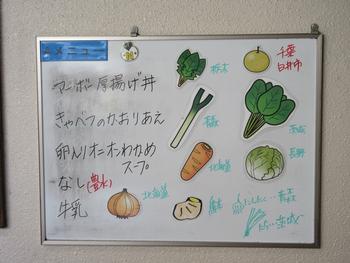 メニュー
マーボー厚揚げ丼
きゃべつのかおりあえ
卵入りオニオンわかめ
スープ
なし(豊水)
牛乳
栃木
千葉
白井市
茨城
北海道
長野
北海道
にんにく…青森
にら…茨城